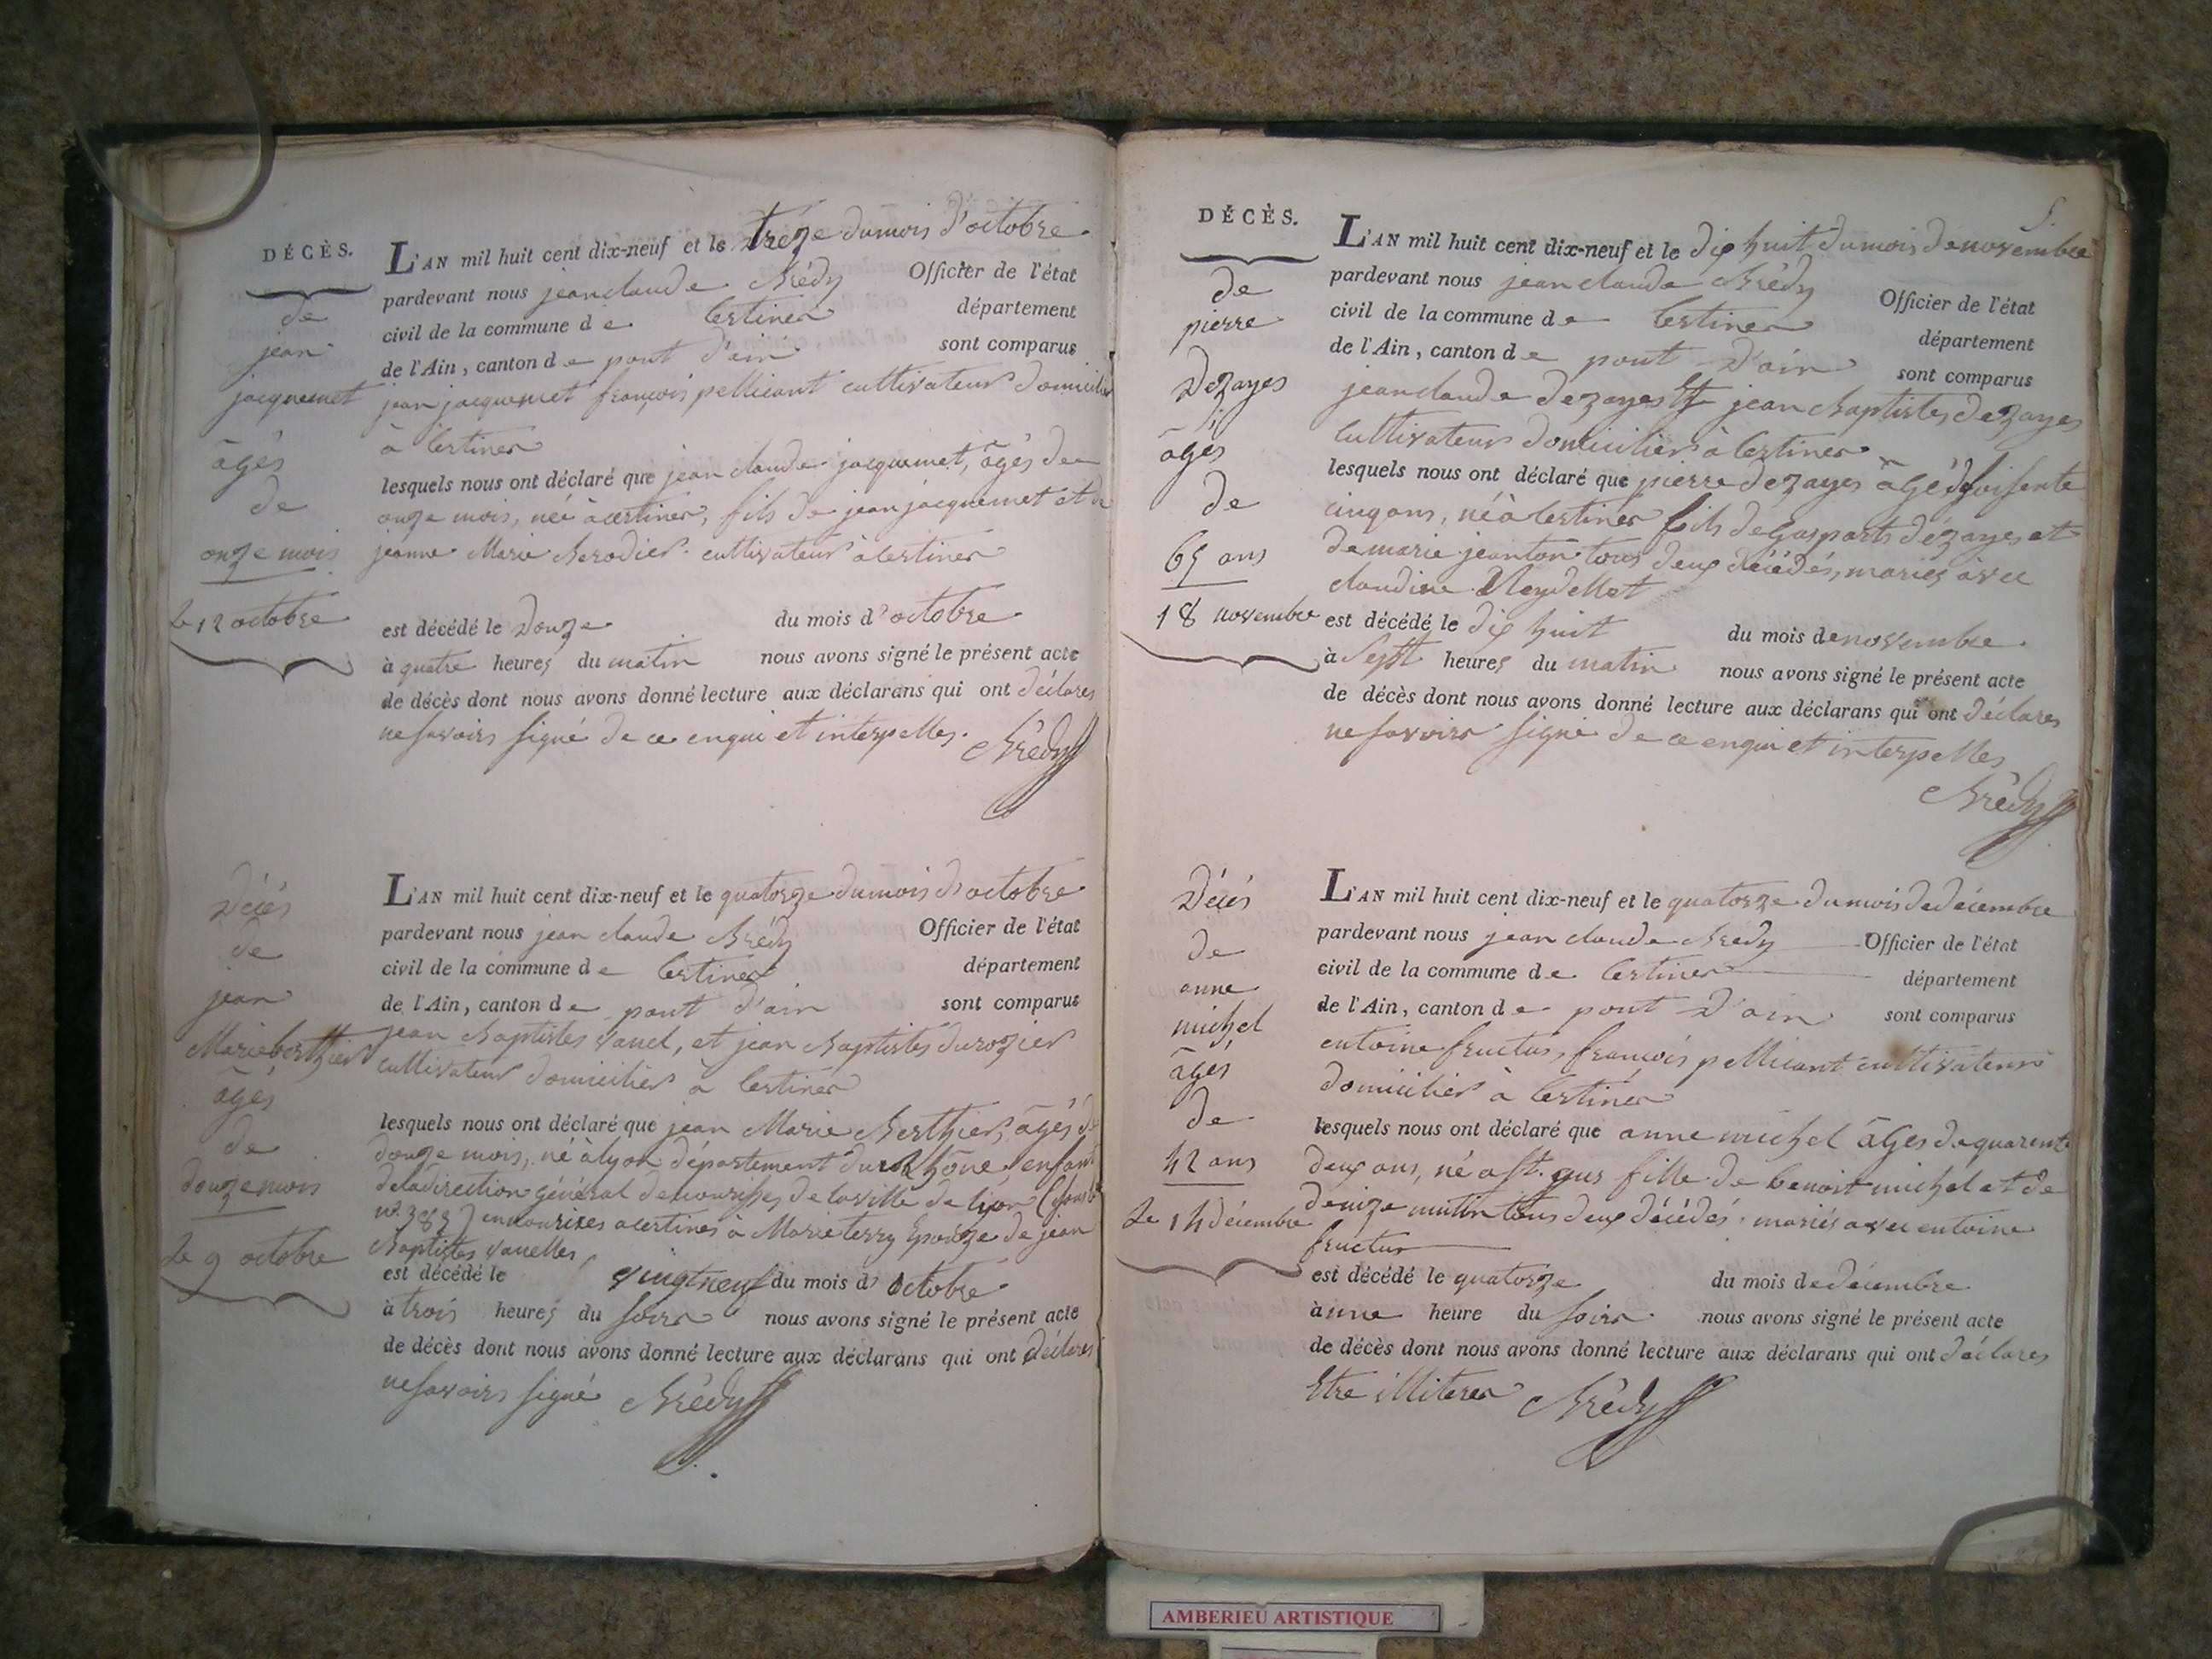 DÉCÈS.
de
jean
jacquemet
âgés
de
onze mois
Le 12 octobre
L'AN mil huit cent dix-neuf et le treze du mois d'octobre
pardevant nous jean claude Brédy Officier de l'état
civil de la commune de Certines département
de l'Ain, canton de pont d'ain sont comparus
jean jacquemet françois pellicant cultivateur
à Certines
lesquels nous ont déclaré que jean claude jacquemet, âgés de
onze mois, née à certines, fils de jean jacquemet et de
jeanne Marie Berodier cultivateur à certines
est décédé le Douze du mois d'octobre
à quatre heures du matin nous avons signé le présent acte
de décès dont nous avons donné lecture aux déclarans qui ont déclares
ne savoirs signé de ce enqui et interpelles.
Brédy
Décés
de
jean
Marie berthier
âgés
de
douze mois
Le 9 octobre
L'AN mil huit cent dix-neuf et le quatorze du mois d'octobre
pardevant nous jean claude Brédy Officier de l'état
civil de la commune de Certines département
de l'Ain, canton de pont d'ain sont comparus
jean Baptistes vanel, et jean Baptistes durozier
cultivateur domicilier à Certines
lesquels nous ont déclaré que jean Marie Berthier, âgés de
douze mois, né à lyon département du Rhône enfant
de la direction général de nourisses de la ville de lyon
en nourixes a certines à Marie terry Epouze de jean
Baptistes vanelles
est décédé le vingt neuf du mois d'octobre
à trois heures du soirs nous avons signé le présent acte
de décès dont nous avons donné lecture aux déclarans qui ont déclares
ne savoirs signé Brédy
DÉCÈS.
de
pierre
Dezayes
âgés
de
65 ans
18 novembre
L'AN mil huit cent dix-neuf et le dix huit du mois de novembre
pardevant nous jean claude Brédy Officier de l'état
civil de la commune de Certines département
de l'Ain, canton de pont d'ain sont comparus
jean claude dezayes Et jean Baptistes dezayes
cultivateur domicilier à Certines
lesquels nous ont déclaré que pierre dezayes âgé de soisente
cinq ans, né à Certines fils de Gasparts dezayes et
de marie jeanton tous deux décédés, mariés avec
claudine Neydellet
est décédé le dix huit du mois de novembre
à Sept heures du matin nous avons signé le présent acte
de décès dont nous avons donné lecture aux déclarans qui ont déclares
ne savoirs signé de ce enqui et interpelles
Brédy
Décés
de
anne
michel
âgés
de
42 ans
Le 14 décembre
L'AN mil huit cent dix-neuf et le quatorze du mois de décembre
pardevant nous jean claude Brédy Officier de l'état
civil de la commune de Certines département
de l'Ain, canton de pont d'ain sont comparus
entoine fructus, françois pellicant cultivateur
domicilier à Certines
lesquels nous ont déclaré que anne michel âgés de quarente
deux ans, né a fille de benoit michel et de
denize mutin tous deux décédés mariés avec entoine
fructus
est décédé le quatorze du mois de décembre
à une heure du soirs nous avons signé le présent acte
de décès dont nous avons donné lecture aux déclarans qui ont déclares
Etre illiteres Brédy
AMBERIEU ARTISTIQUE